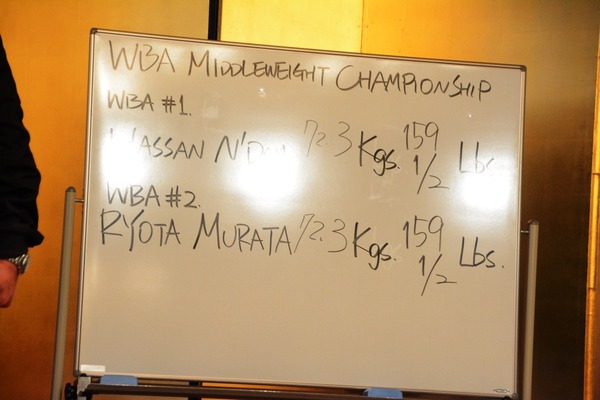 WBA MIDDLEWEIGHT CHAMPIONSHIP
WBA #1.
HASSAN 72.3 Kgs. 159 1/2 Lbs.
WBA #2.
RYOTA MURATA 72.3 Kgs. 159 1/2 Lbs.